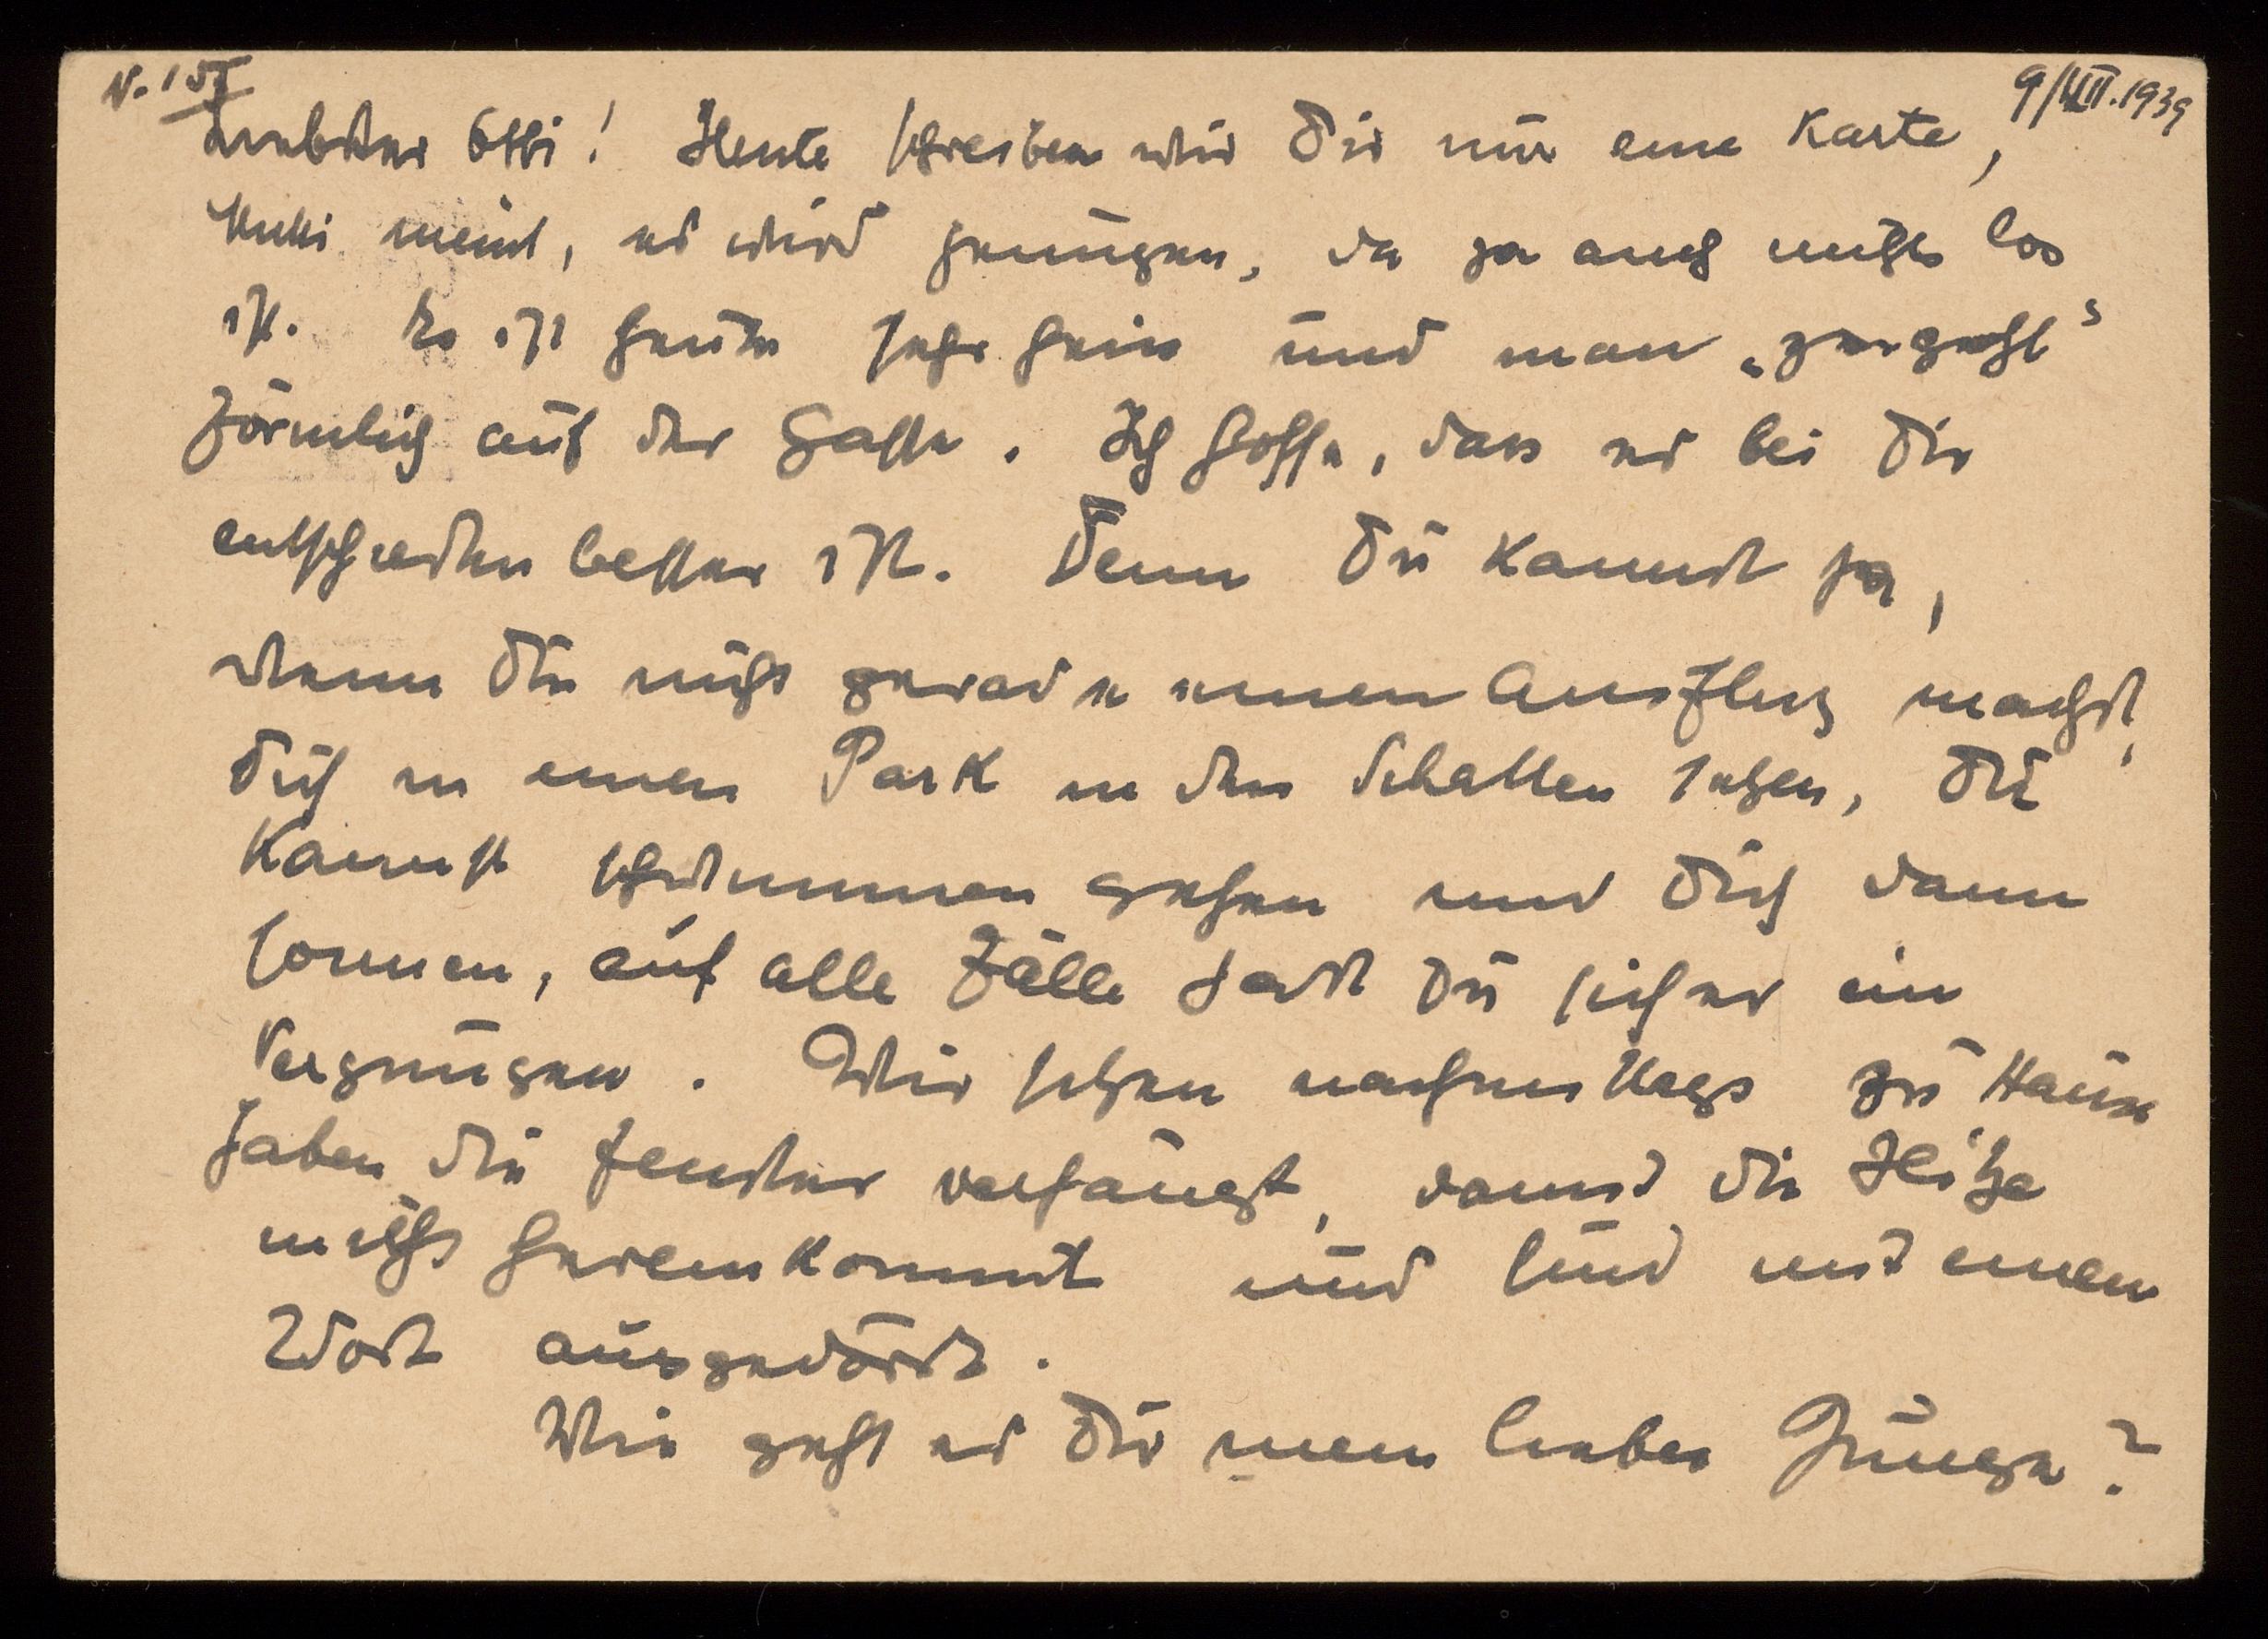 N. 157 9/VIII.1939
Liebster Otti! Heute schreiben wir Dir nur eine Karte,
Mutti meint, es wird genügen, da ja auch nichts los
ist. Es ist heute sehr heiss und man „zergeht“
förmlich auf der Gasse. Ich hoffe, dass es bei Dir
entschieden besser ist. Denn Du kannst ja,
wenn Du nicht gerade einen Ausflug machst,
Dich in einen Park in den Schatten setzen, Du
kannst schwimmen gehen und Dich dann
sonnen, auf alle Fälle hast Du sicher ein
Vergnügen. Wir sitzen nachmittags zu Hause
haben die Fenster verhängt, damit die Hitze
nicht hereinkommt und sind mit einem
Wort ausgedörrt.
Wie geht es Dir mein lieber Junge?